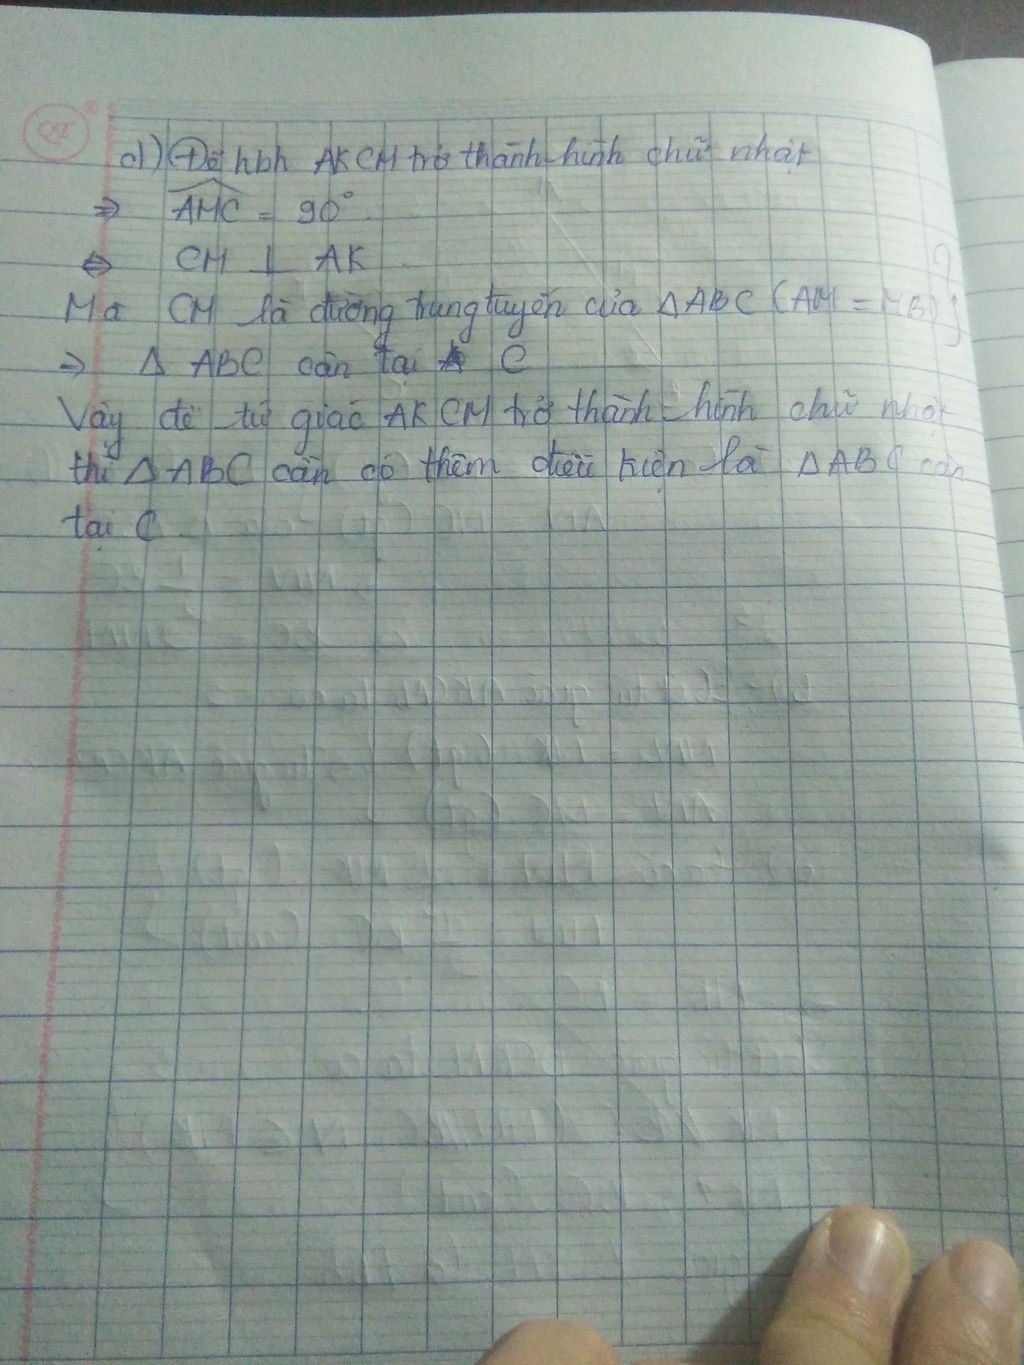 d) Để hbh AKCM trở thành hình chữ nhật
⇒ AMC = 90°
⇔ CM ⊥ AK
Mà CM là đường trung tuyến của ΔABC (AM = MB)
⇒ Δ ABC cân tại C
Vậy để tứ giác AKCM trở thành hình chữ nhật
thì ΔABC cần có thêm điều kiện là ΔABC cân
tại C